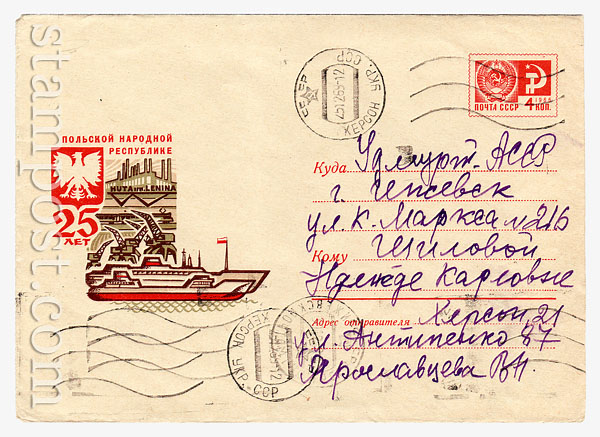 stampost.com
ХЕРСОН УКР. ССР
ПОЧТА СССР
4 КОП.
1966
ПОЛЬСКОЙ НАРОДНОЙ
РЕСПУБЛИКЕ
HUTA IM. LENINA
25
ЛЕТ
Куда Удмурт. АССР
г. Ижевск
ул. К. Маркса 216
Кому Шиловой
Надежде Карловне
Адрес отправителя Херсон 21
ул. Антипенко 37
Ярославцева В Н.
ХЕРСОН УКР. ССР